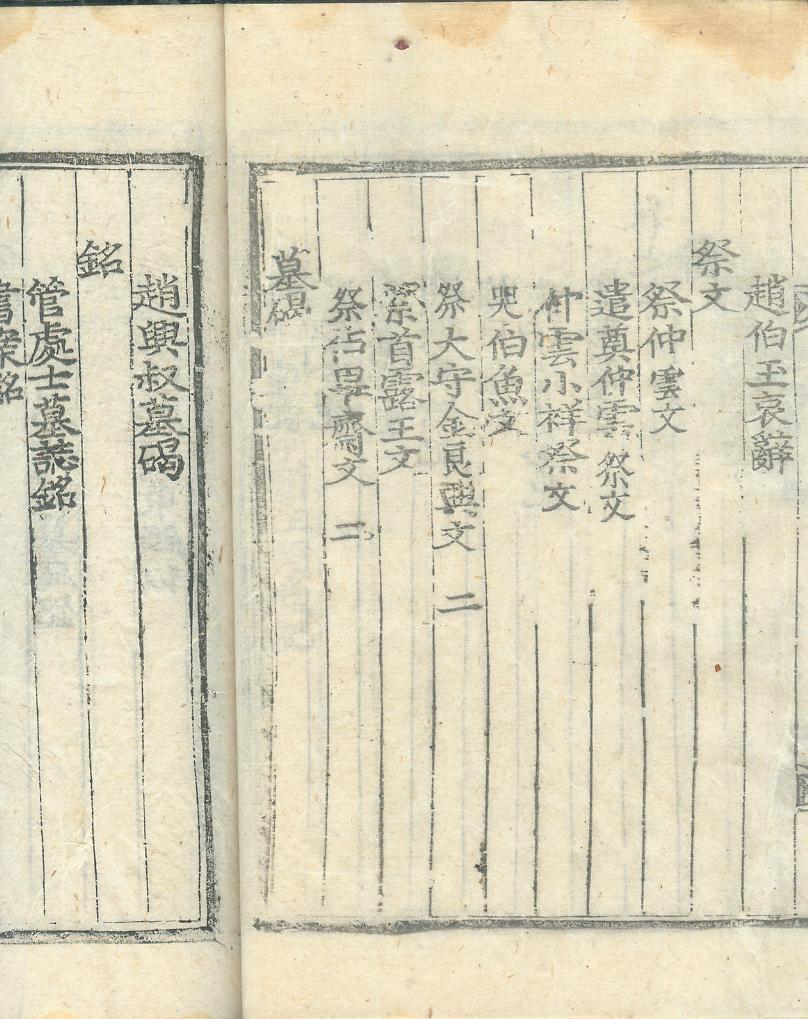 趙伯玉哀辭
祭文
祭仲雲文
遣奠仲雲祭文
仲雲小祥祭文
哭伯魚文
祭大守金良璵文 二
祭首露王文
祭佔畢齋文 二
墓碣
趙興叔墓碣
銘
管處士墓誌銘
書案銘